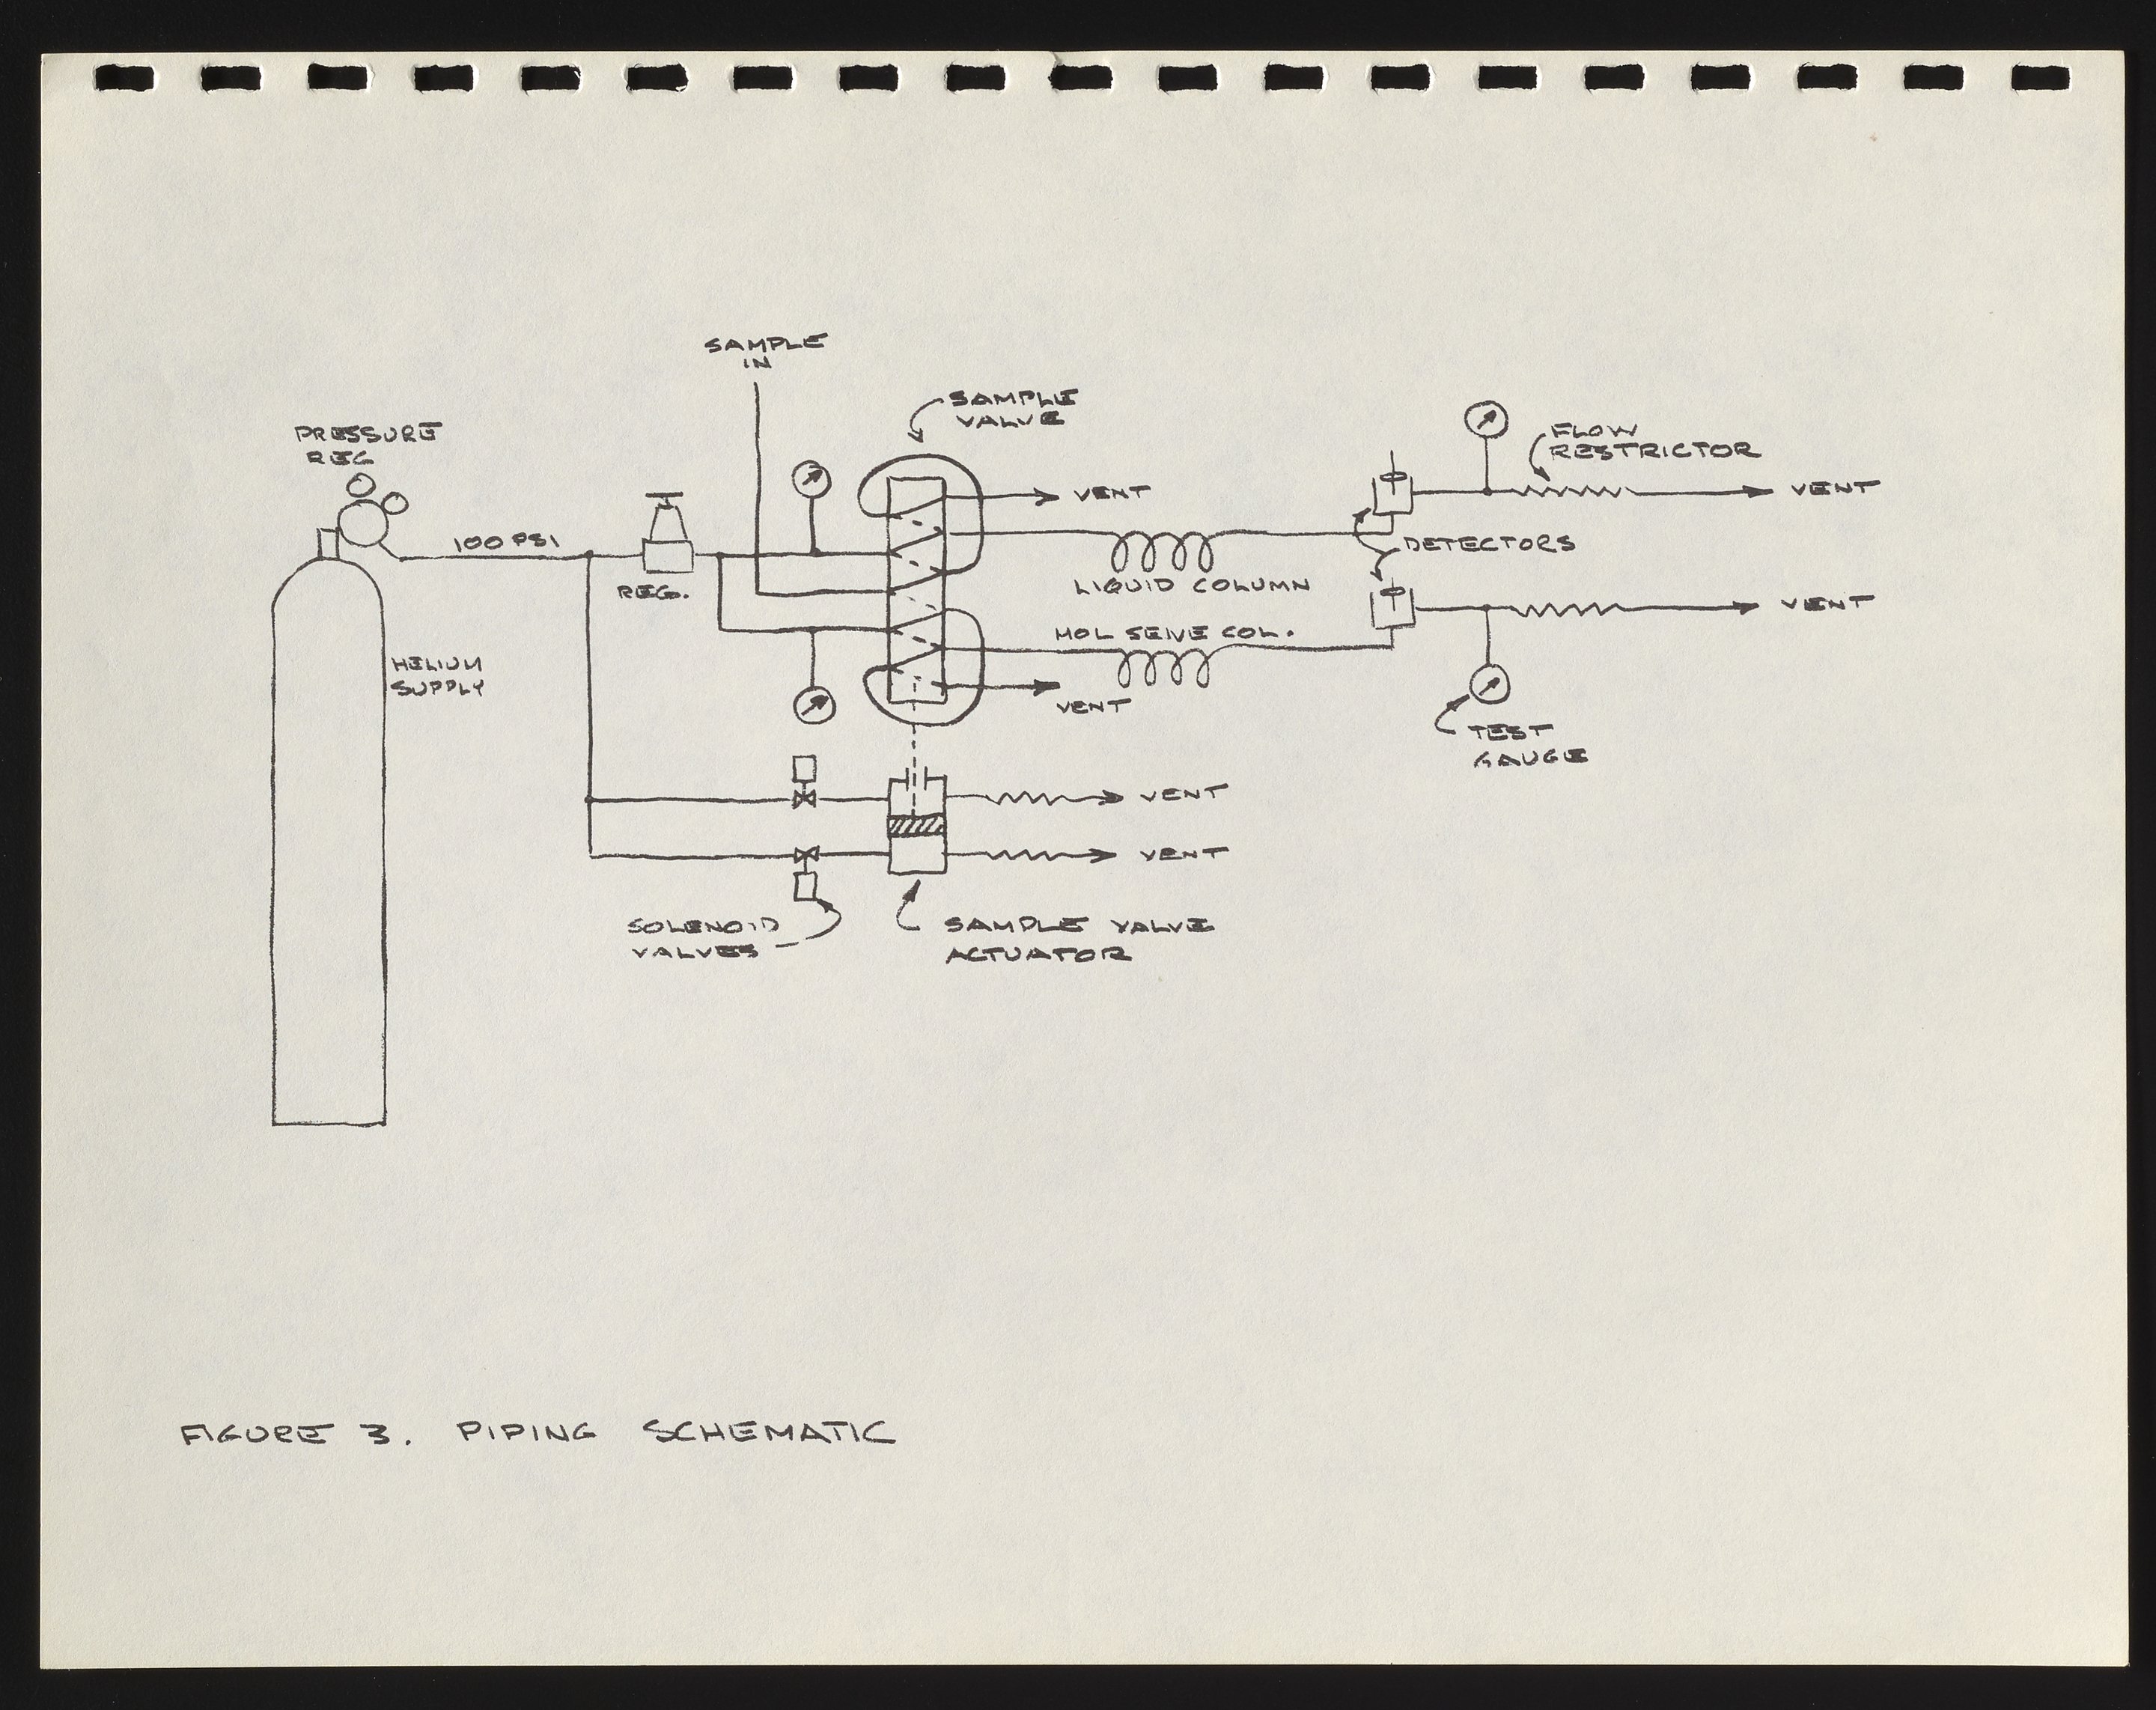 SAMPLE
IN
SAMPLE
VALVE
PRESSURE
REG
FLOW
RESTRICTOR
VENT
VENT
100 PSI
DETECTORS
REG.
LIQUID COLUMN
VENT
MOL SEIVE COL.
HELIUM
SUPPLY
VENT
TEST
GAUGE
VENT
VENT
SOLENOID
VALVES
SAMPLE VALVE
ACTUATOR
FIGURE 3. PIPING SCHEMATIC